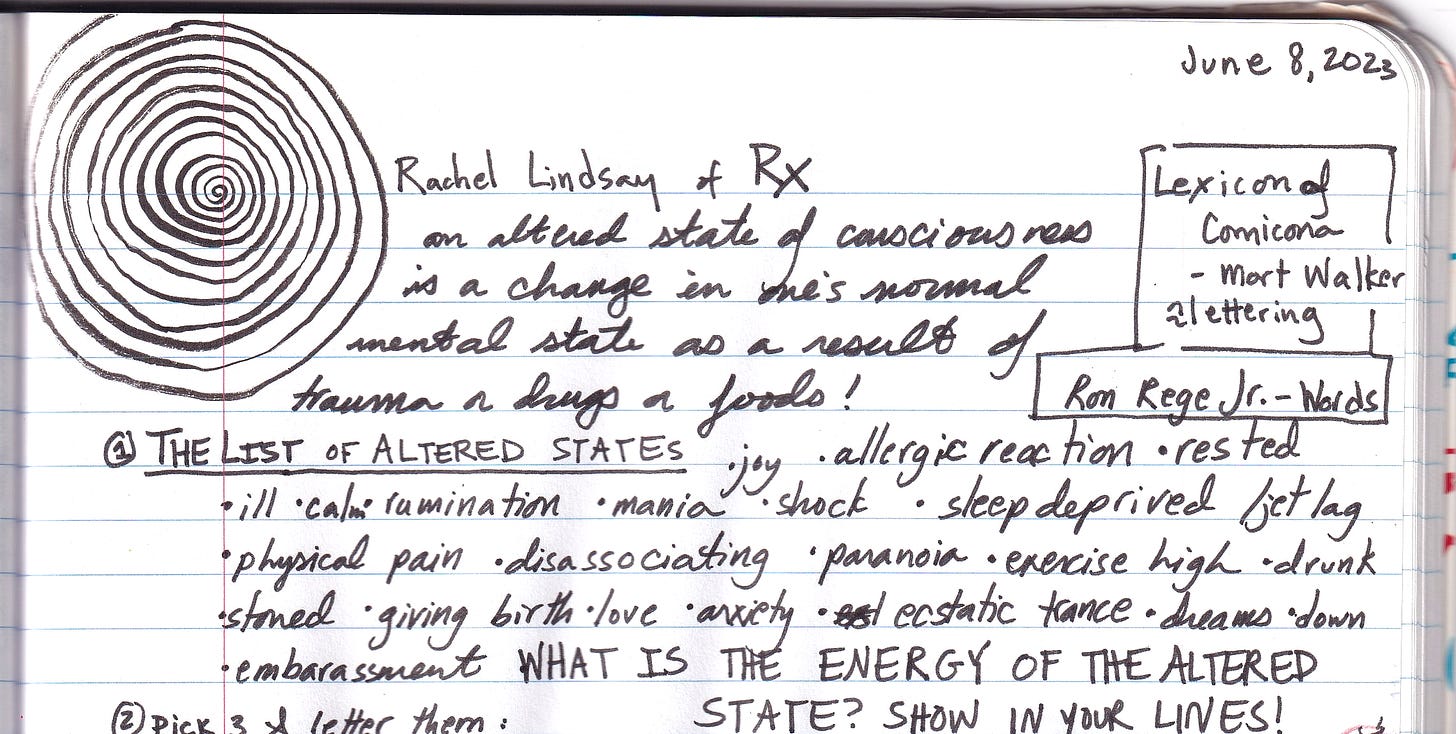 June 8, 2023
Rachel Lindsay of Rx
an altered state of consciousness
is a change in one's normal
mental state as a result of
trauma or drugs or foods!
Lexicon of
Comicana
- Mort Walker
lettering
Ron Rege Jr. - Words
① THE LIST OF ALTERED STATES
·joy ·allergic reaction ·rested
·ill ·calm· rumination ·mania ·shock ·sleep deprived /jet lag
·physical pain ·disassociating ·paranoia ·exercise high ·drunk
·stoned ·giving birth ·love ·anxiety · ecstatic trance ·dreams ·down
·embarassment WHAT IS THE ENERGY OF THE ALTERED
STATE? SHOW IN YOUR LINES!
② Pick 3 & letter them: